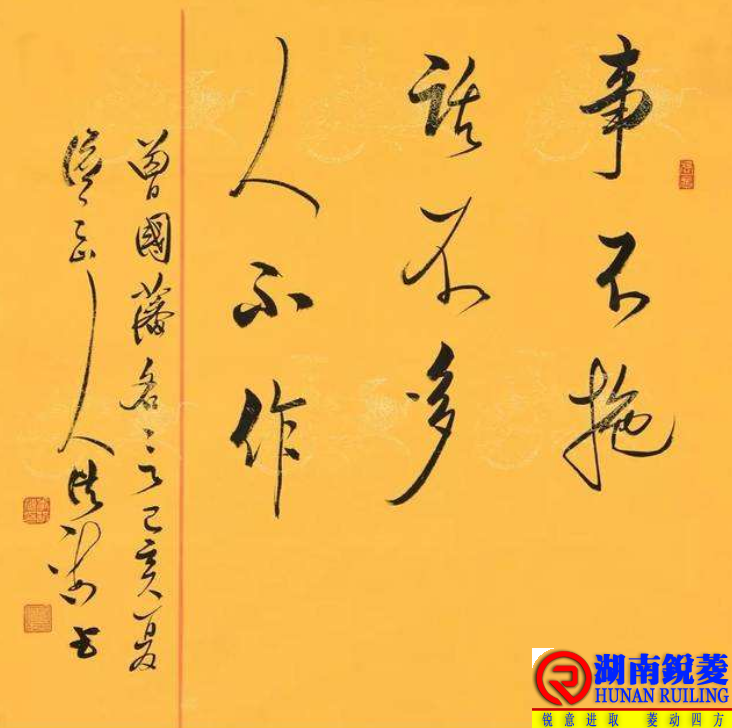 事不拖
话不多
人不作
曾國藩名言己亥夏
人洪
书
湖南锐菱
HUNAN RUILING
锐意进取 菱动四方